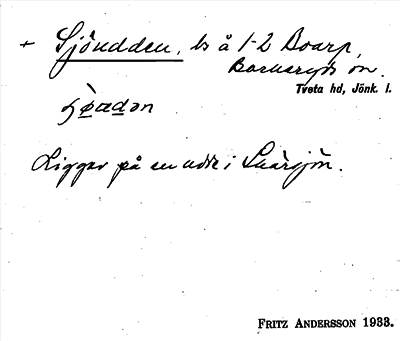 + Sjöudden, ls å 1-2 Boarp,
Barnaryds sn.
Tveta hd, Jönk. l.
Ligger på en udde i Svärsjön.
FRITZ ANDERSSON 1933.